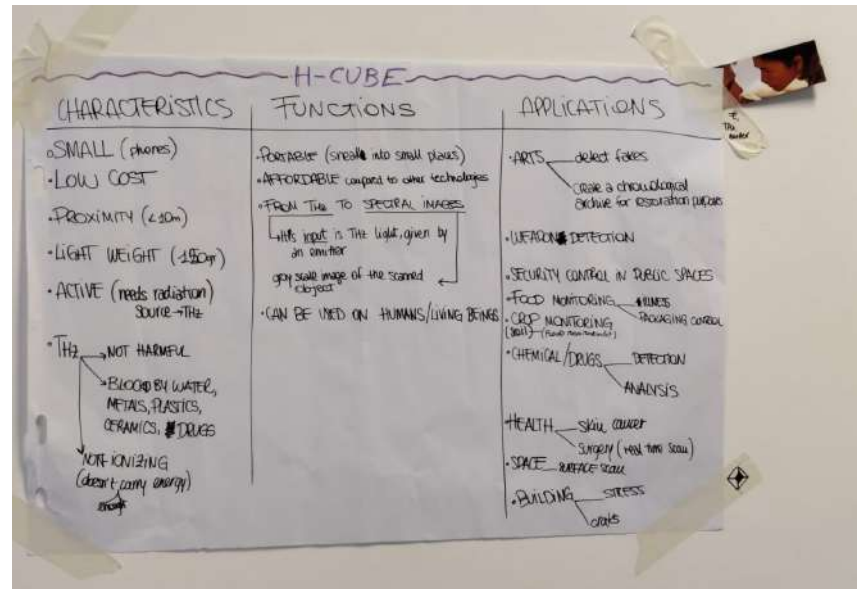 H-CUBE
CHARACTERISTICS
SMALL (phones)
LOW COST
PROXIMITY (<10m)
LIGHT WEIGHT
ACTIVE (needs radiation)
Source → THz
THz → NOT HARMFUL
BLOCKED BY WATER,
METALS, PLASTICS,
CERAMICS, DRUGS
NON-IONIZING
(doesn't carry energy)
enough
FUNCTIONS
PORTABLE (sneak into small places)
AFFORDABLE compared to other technologies
FROM THz TO SPECTRAL IMAGES
its input is THz light, given by
an emitter
gray scale image of the scanned
object
CAN BE USED ON HUMANS/LIVING BEINGS
APPLICATIONS
ARTS detect fakes
create a chronological
archive for restoration purposes
WEAPONS DETECTION
SECURITY CONTROL IN PUBLIC SPACES
FOOD MONITORING
PACKAGING CONTROL
CROP MONITORING
(soil)
CHEMICAL/DRUGS DETECTION
ANALYSIS
HEALTH skin cancer
surgery (real time scan)
SPACE SURFACE scan
BUILDING STRESS